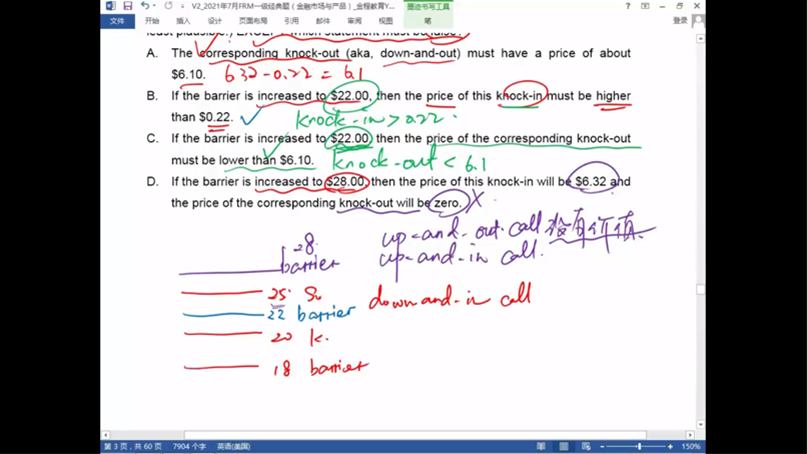 墨迹书写工具
V2_2021年7月FRM一级经典题(金融市场与产品)_金程教育
文件 开始 插入 设计 页面布局 引用 邮件 审阅 视图 笔 登录
least plausible.) EXCEPT which statement must be false?
A. The corresponding knock-out (aka, down-and-out) must have a price of about
$6.10. 6.32-0.22 = 6.1
B. If the barrier is increased to $22.00, then the price of this knock-in must be higher
than $0.22. knock-in > 0.22
C. If the barrier is increased to $22.00 then the price of the corresponding knock-out
must be lower than $6.10. knock-out < 6.1
D. If the barrier is increased to $28.00 then the price of this knock-in will be $6.32 and
the price of the corresponding knock-out will be zero. X
28 up-and-out call 没有价值
barrier up-and-in call.
25 S0 down and-in call
22 barrier
20 k.
18 barrier
第 3 页,共 60 页 7904 个字 英语(美国) 150%